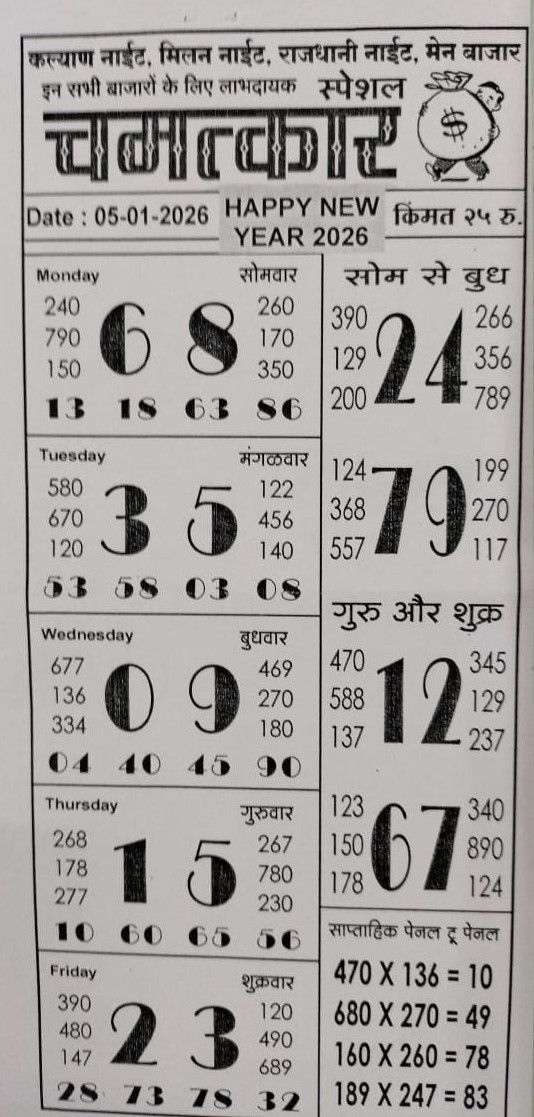 कल्याण नाईट, मिलन नाईट, राजधानी नाईट, मेन बाजार
इन सभी बाजारों के लिए लाभदायक स्पेशल
चमत्कार
$
Date : 05-01-2026
HAPPY NEW
YEAR 2026
किंमत २५ रु.
Monday सोमवार
240 260
790 6 8 170
150 350
13 18 63 86
Tuesday मंगळवार
580 122
670 3 5 456
120 140
53 58 03 08
Wednesday बुधवार
677 469
136 0 9 270
334 180
04 40 45 90
Thursday गुरुवार
268 267
178 1 5 780
277 230
10 60 65 56
Friday शुक्रवार
390 120
480 2 3 490
147 689
28 73 78 32
सोम से बुध
390 266
129 24 356
200 789
124 199
368 79 270
557 117
गुरु और शुक्र
470 345
588 12 129
137 237
123 340
150 67 890
178 124
साप्ताहिक पेनल टू पेनल
470 X 136 = 10
680 X 270 = 49
160 X 260 = 78
189 X 247 = 83